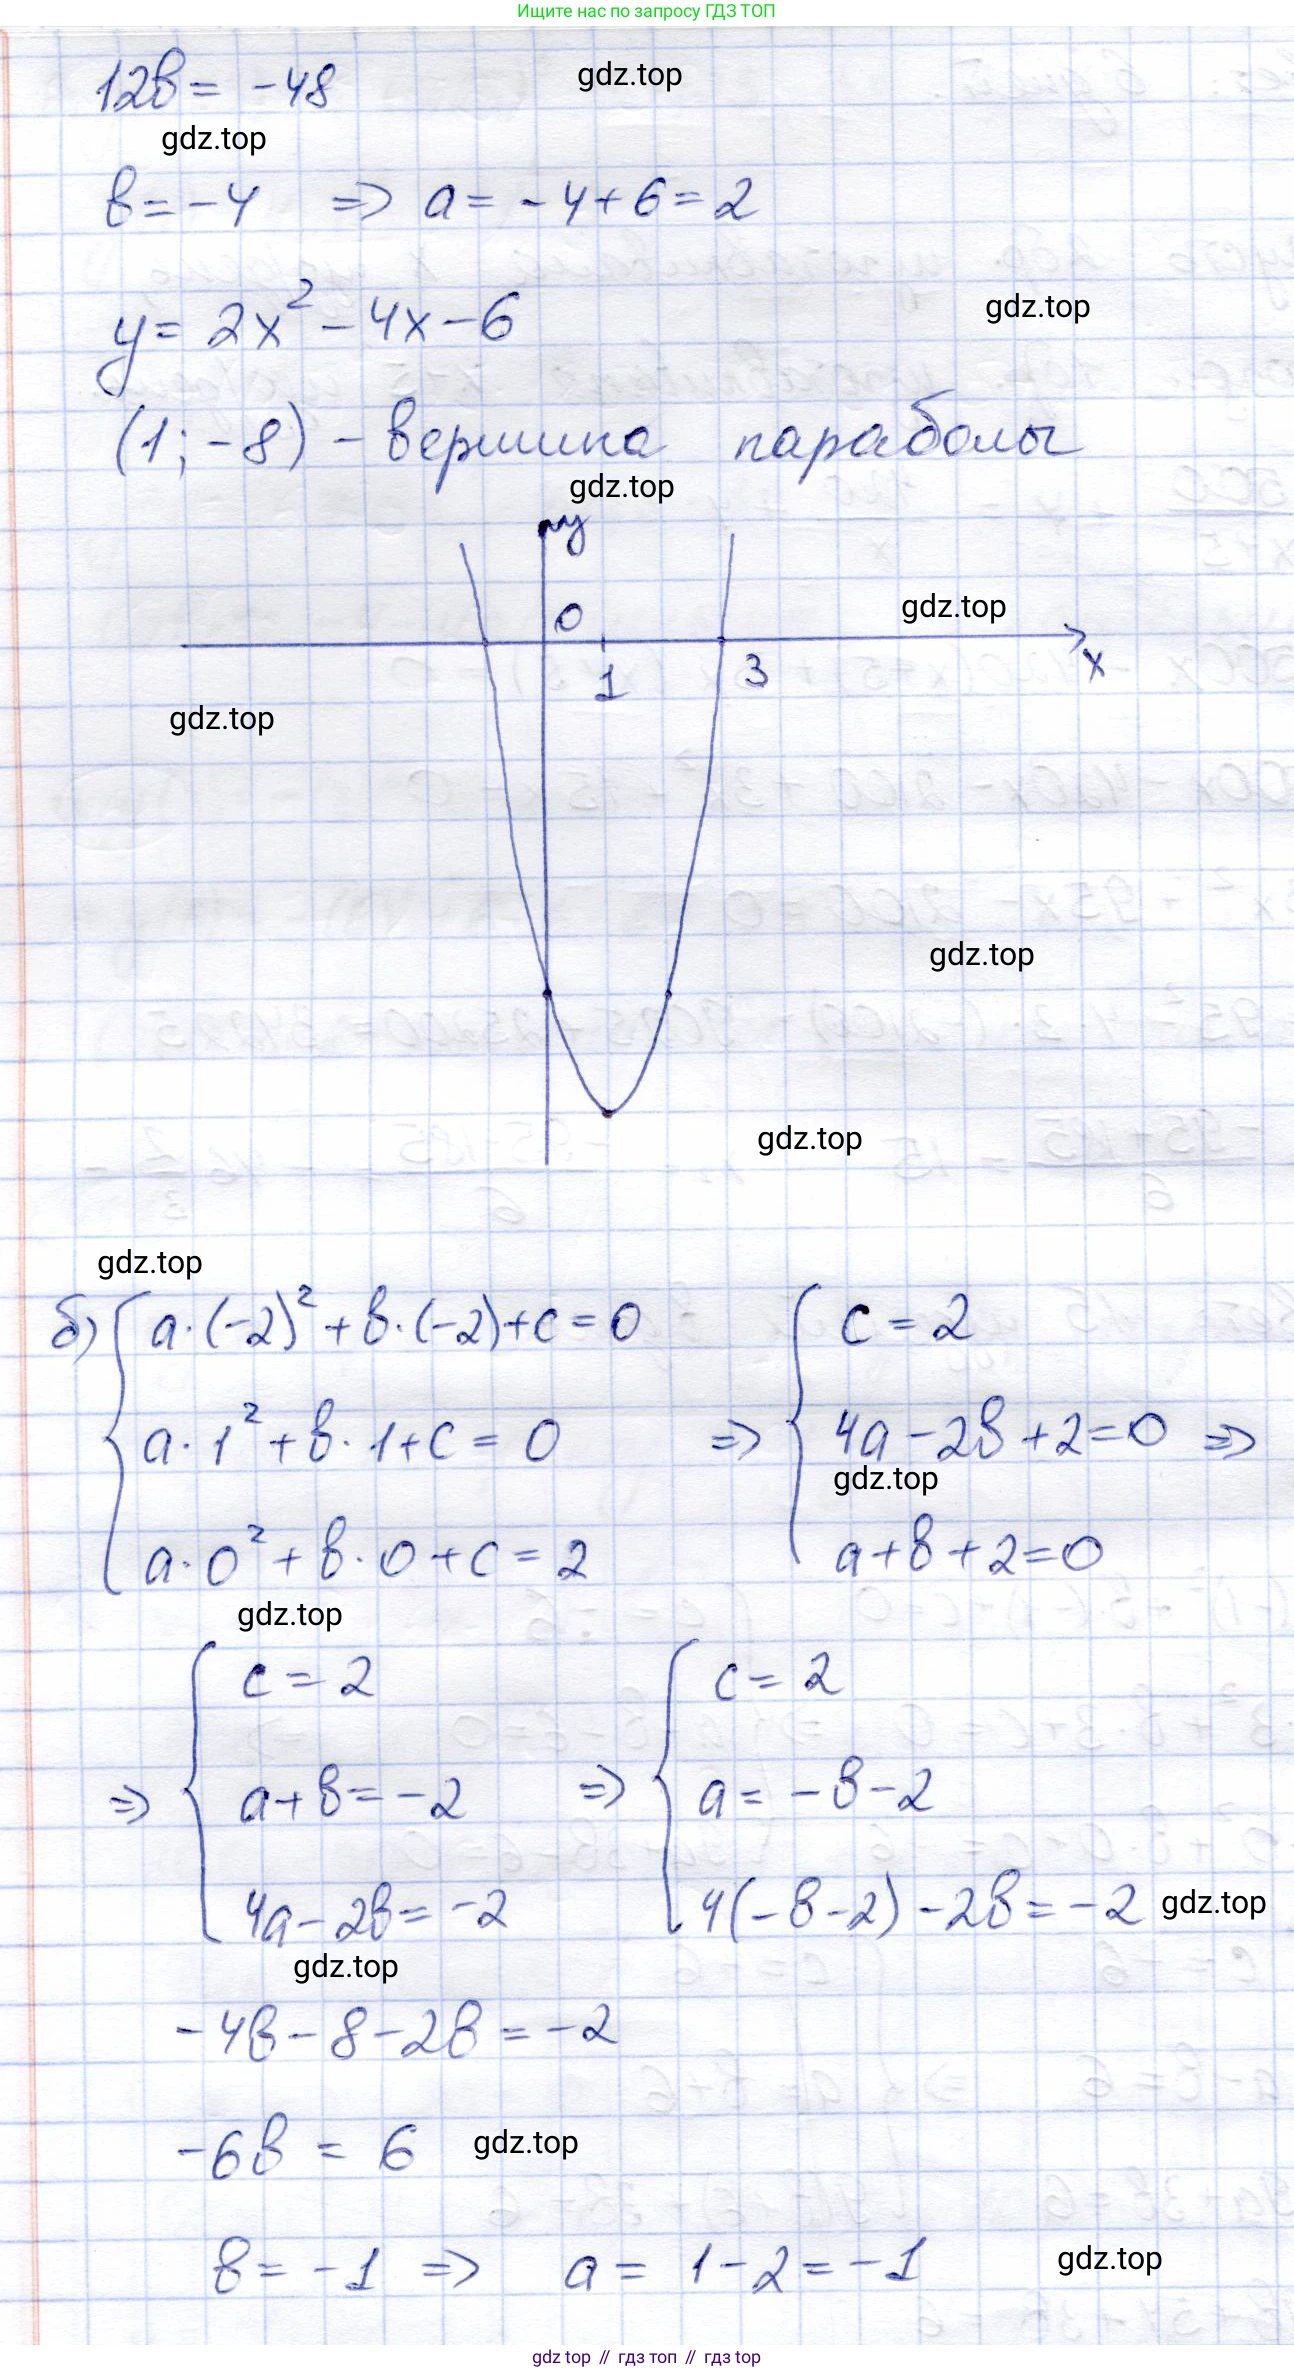 Ищите нас по запросу ГДЗ ТОП
12в = -48
gdz.top
gdz.top
в = -4 => a = -4+6=2
y = 2x² - 4x - 6
gdz.top
(1; -8) - вершина параболы
gdz.top
y
0
gdz.top
1 3 x
gdz.top
gdz.top
gdz.top
gdz.top
б) { a·(-2)² + в·(-2)+c = 0
a·1² + в·1+c = 0
a·0² + в·0+c = 2
=> { c = 2
4a - 2в + 2 = 0 =>
gdz.top
a + в + 2 = 0
gdz.top
=> { c = 2
a + в = -2
4a - 2в = -2
=> { c = 2
a = -в - 2
4(-в-2) - 2в = -2
gdz.top
gdz.top
-4в - 8 - 2в = -2
-6в = 6
gdz.top
в = -1 => a = 1 - 2 = -1
gdz.top
gdz top // гдз топ // гдз top